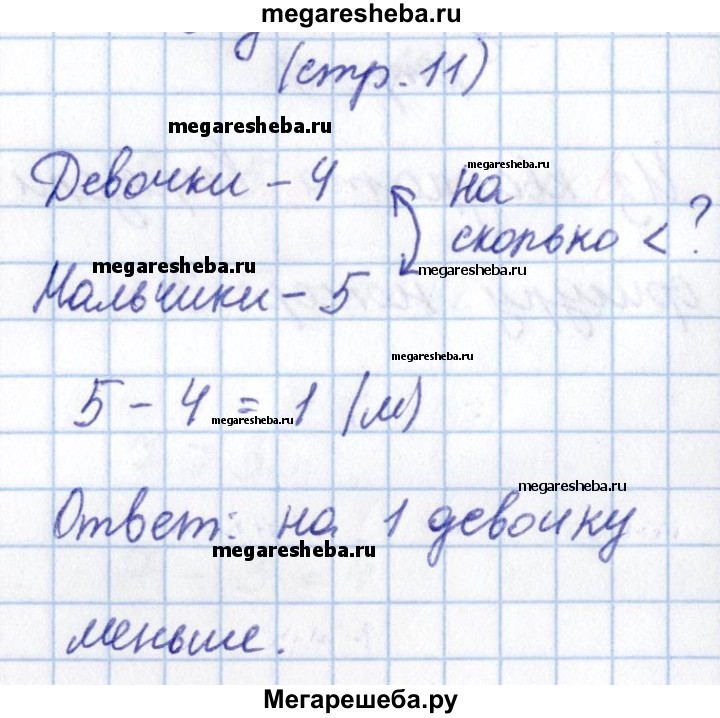 megaresheba.ru
(стр. 11)
megaresheba.ru
Девочки - 4
megaresheba.ru
на
сколько < ?
megaresheba.ru
megaresheba.ru
Мальчики - 5
megaresheba.ru
5 - 4 = 1 (м)
megaresheba.ru
megaresheba.ru
Ответ: на 1 девочку
megaresheba.ru
меньше.
Мегарешеба.ру